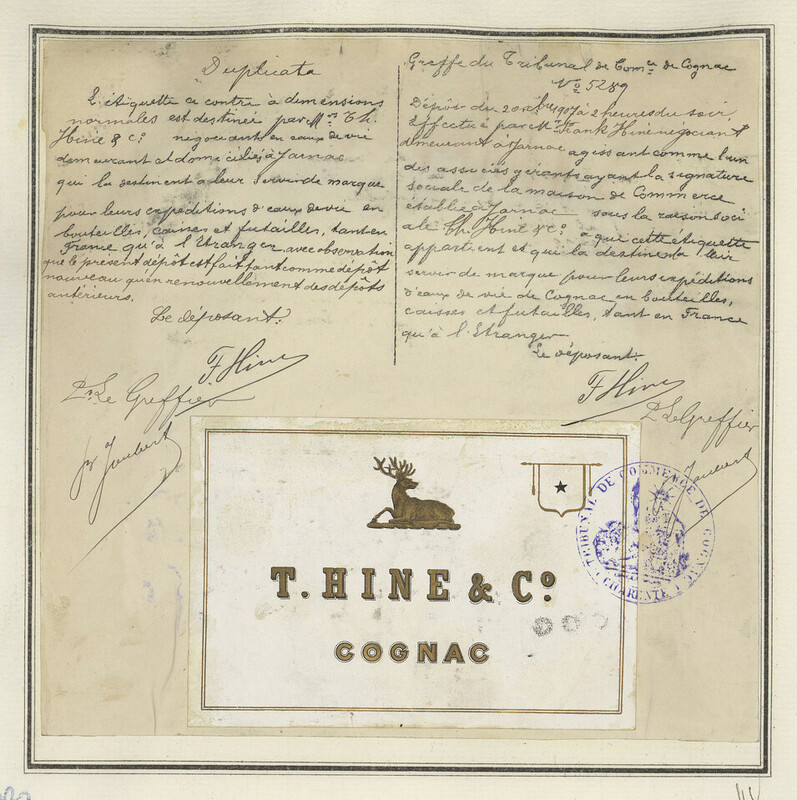 Duplicata
L'étiquette ci contre à dimensions
normales est destinée par Mrs Th.
Hine & Co négociants en eaux de vie
demeurant et domiciliés à Jarnac
qui la destinent à leur servir de marque
pour leurs expéditions d'eaux de vie en
bouteilles, caisses et futailles, tant en
France qu'à l'Etranger, avec observation
que le présent dépôt est fait tant comme dépôt
nouveau qu'en renouvellement des dépôts
antérieurs.
Le déposant:
F. Hine
Le Greffier
Joubert
Greffe du Tribunal de Comce de Cognac
No 5289
Dépôt du 20 1907 à 2 heures du soir,
Effectué par Mr Frank Hine négociant
demeurant à Jarnac agissant comme l'un
des associés gérants ayant la signature
sociale de la maison de Commerce
établie à Jarnac sous la raison soci
ale Th. Hine & Co à qui cette étiquette
appartient et qui la destine à leur
servir de marque pour leurs expéditions
d'eaux de vie de Cognac en bouteilles,
caisses et futailles, tant en France
qu'à l'Etranger
Le déposant.
F. Hine
Le Greffier
Joubert
T. HINE & Co
COGNAC
TRIBUNAL DE COMMERCE DE COGNAC
CHARENTE